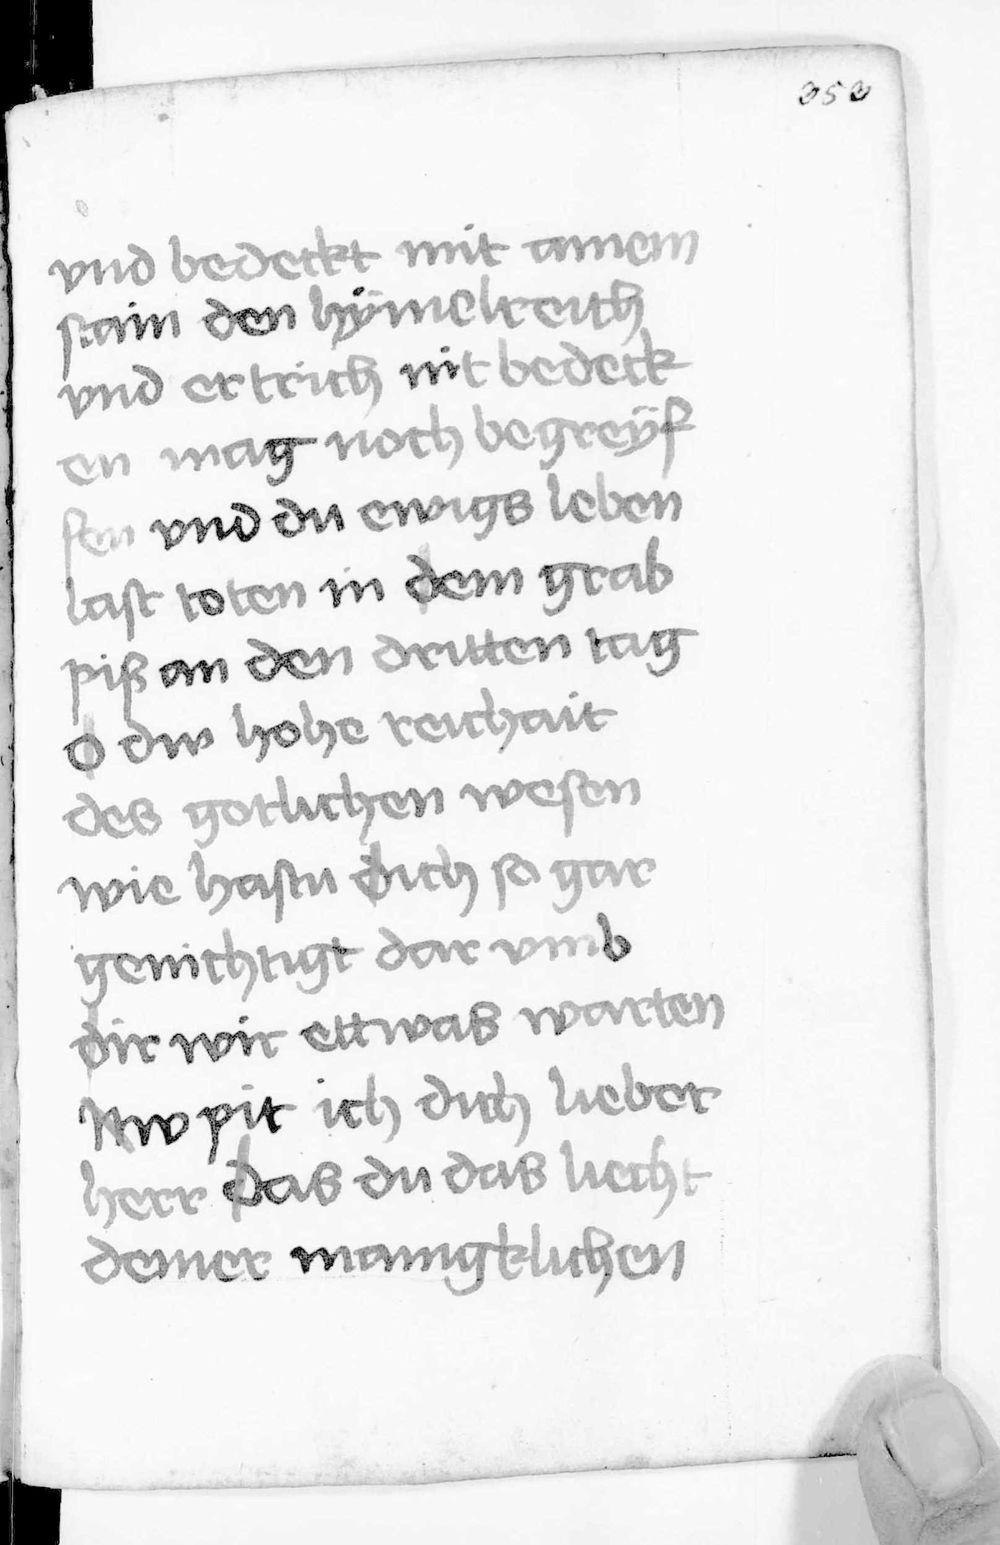 353
vnd bedeckt mit ainem
stain den hÿmelreich
vnd ertrich nit bedeck
en mag noch begreÿf
fen vnd du ewigs leben
last toten in dem grab
piß an den dritten tag
O dw hohe reichait
des gotlichen wesen
wie hastu dich so gar
genichtigt dar vmb
dir wir ettwas warten
Nw pit ich dich lieber
herr das du das liecht
deiner manigklichen